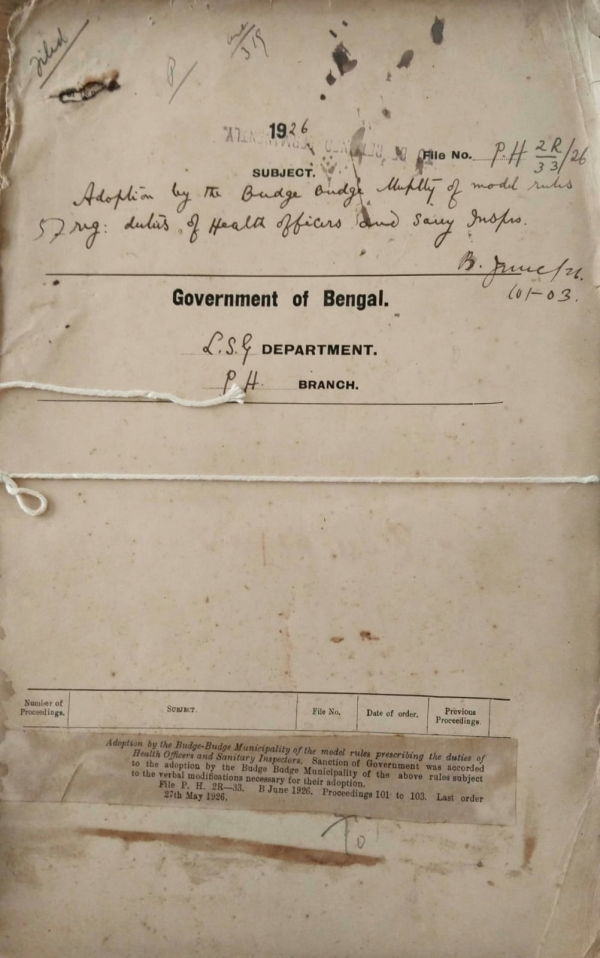 Filed
P
1926
File No. P.H 2R/33/26
SUBJECT.
Adoption by the Budge Budge Muplty of model rules
57 reg: duties of Health officers and Sany Insprs.
B. June/26.
101-03.
Government of Bengal.
L.S.G DEPARTMENT.
P.H. BRANCH.
Number of Proceedings. SUBJECT. File No. Date of order. Previous Proceedings.
Adoption by the Budge-Budge Municipality of the model rules prescribing the duties of
Health Officers and Sanitary Inspectors. Sanction of Government was accorded
to the adoption by the Budge Budge Municipality of the above rules subject
to the verbal modifications necessary for their adoption.
File P. H. 2R—33. B June 1926. Proceedings 101 to 103. Last order
27th May 1926.